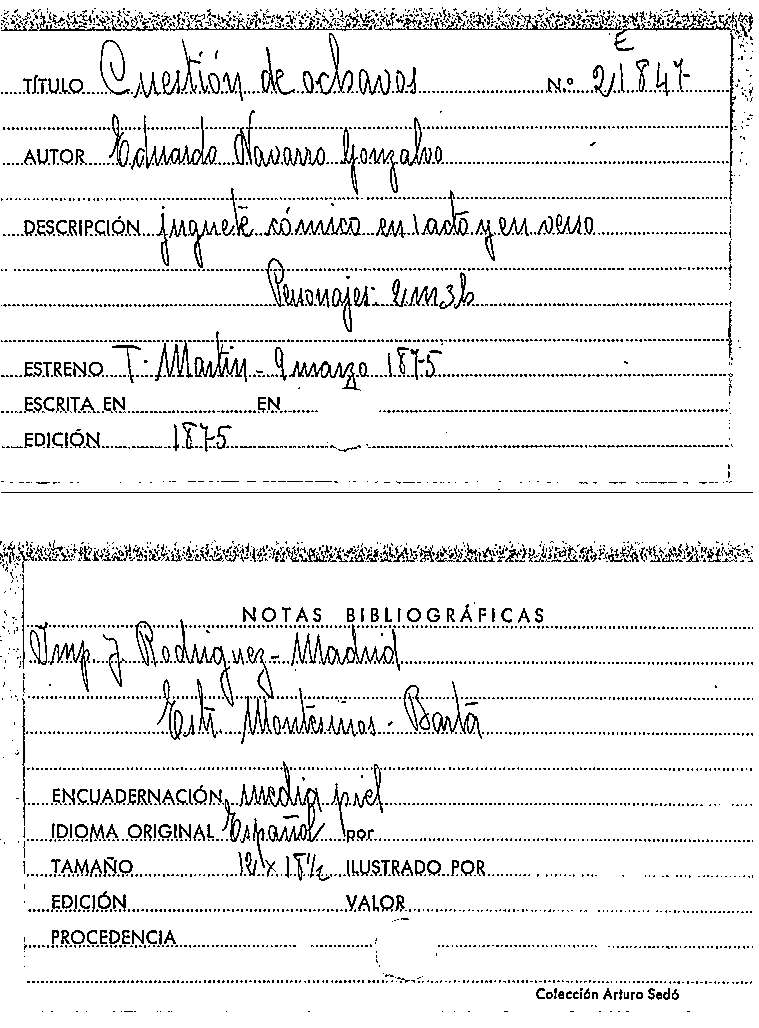 E
TÍTULO Cuestión de ochavos N.º 21847
AUTOR Eduardo Navarro Gonzalvo
DESCRIPCIÓN juguete cómico en 1 acto y en verso
Personajes: 2m3h
ESTRENO T. Martín - 9 marzo 1875
ESCRITA EN EN
EDICIÓN 1875
NOTAS BIBLIOGRÁFICAS
Imp. J. Rodriguez - Madrid
Estr. Montesinos -
ENCUADERNACIÓN media piel
IDIOMA ORIGINAL Español por
TAMAÑO 12 x 18½ ILUSTRADO POR
EDICIÓN VALOR
PROCEDENCIA
Colección Arturo Sedó